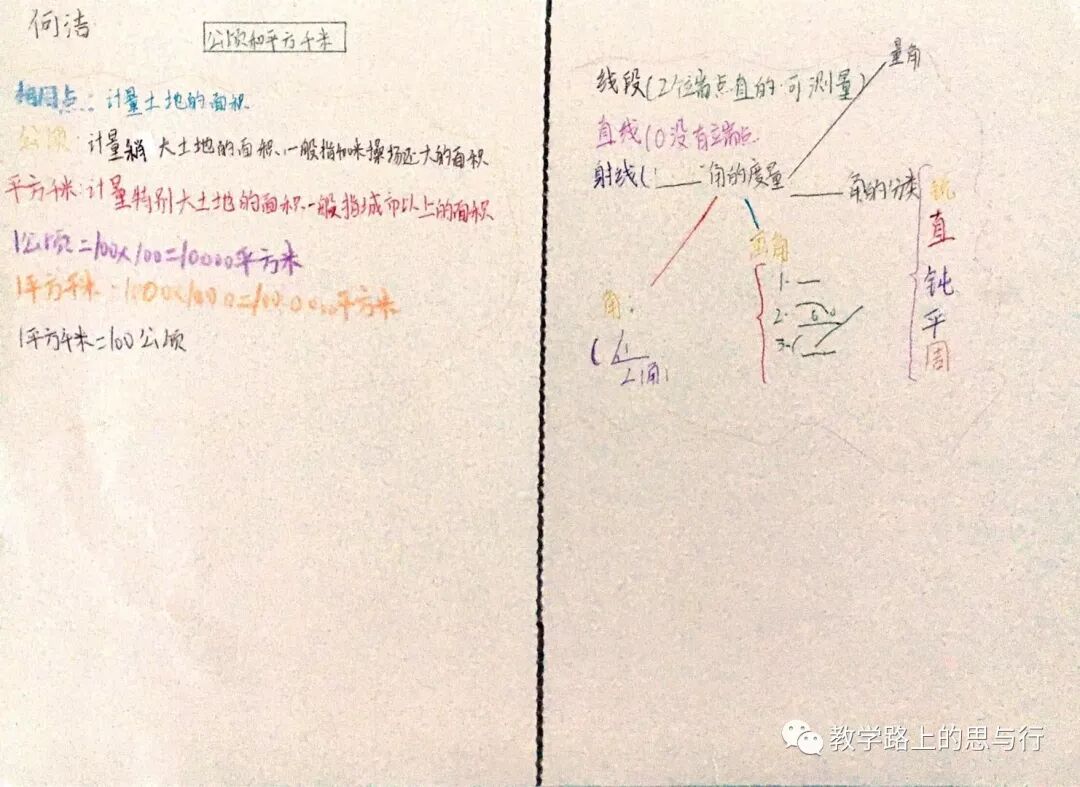 何洁
公顷和平方千米
相同点：计量土地的面积
公顷：计量稍大土地的面积.一般指400米操场还大的面积
平方千米：计量特别大土地的面积.一般指城市以上的面积
1公顷=100×100=10000平方米
1平方千米=1000×1000=1000000平方米
1平方千米=100公顷
量角
线段(2个端点.直的.可测量)
直线(0没有端点.
射线(
角的度量
角的分类
直
钝
平
周
画角
1.
2.
3.
角：
教学路上的思与行